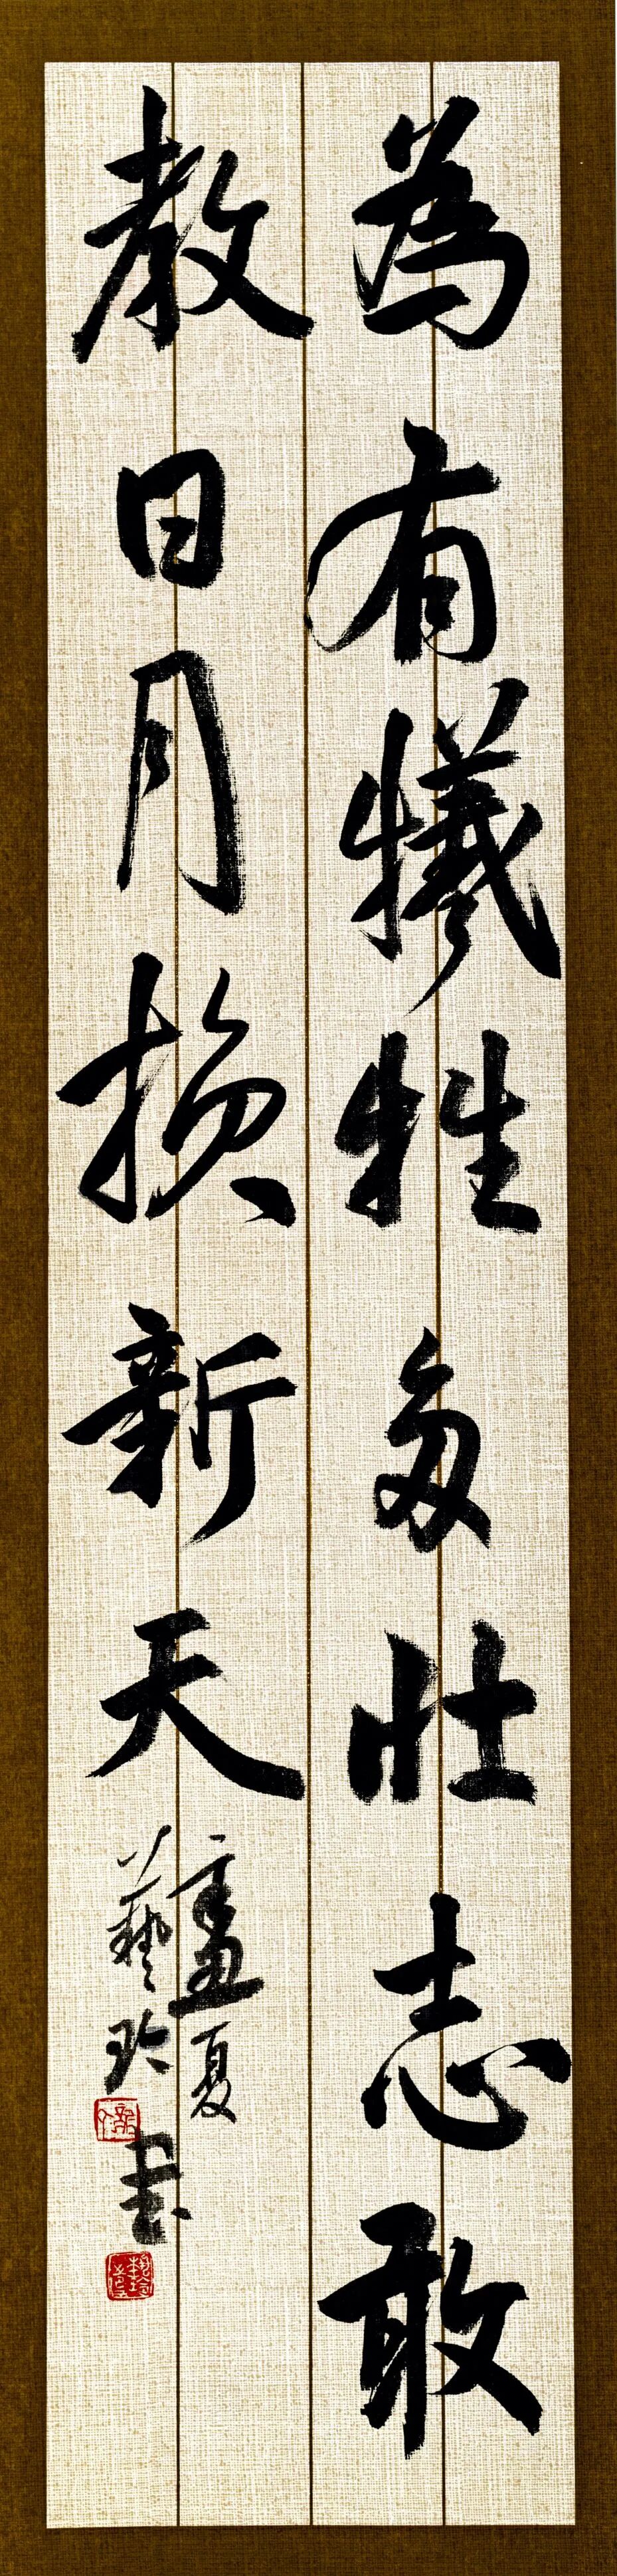 為有犧牲多壯志敢
教日月換新天
孟夏
藝玲書